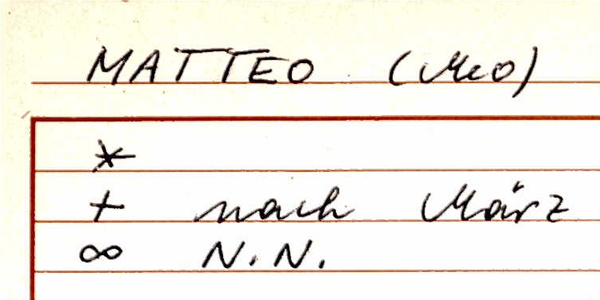 MATTEO (Meo)
*
+ nach März
∞ N.N.